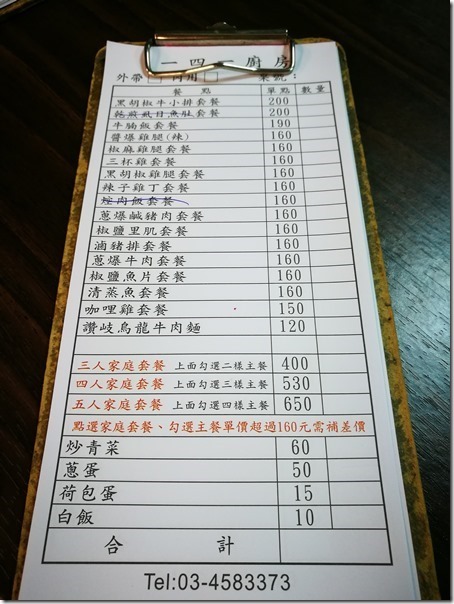 一四一廚房
外帶□ 內用□ 桌號：
餐點 單點 數量
黑胡椒牛小排套餐 200
乾煎虱目魚肚套餐 200
牛腩飯套餐 190
醬爆雞腿(辣) 160
椒麻雞腿套餐 160
三杯雞套餐 160
黑胡椒雞腿套餐 160
辣子雞丁套餐 160
焢肉飯套餐 160
蔥爆鹹豬肉套餐 160
椒鹽里肌套餐 160
滷豬排套餐 160
蔥爆牛肉套餐 160
椒鹽魚片套餐 160
清蒸魚套餐 160
咖哩雞套餐 150
讚岐烏龍牛肉麵 120
三人家庭套餐 上面勾選二樣主餐 400
四人家庭套餐 上面勾選三樣主餐 530
五人家庭套餐 上面勾選四樣主餐 650
點選家庭套餐、勾選主餐單價超過160元需補差價
炒青菜 60
蔥蛋 50
荷包蛋 15
白飯 10
合計
Tel:03-4583373